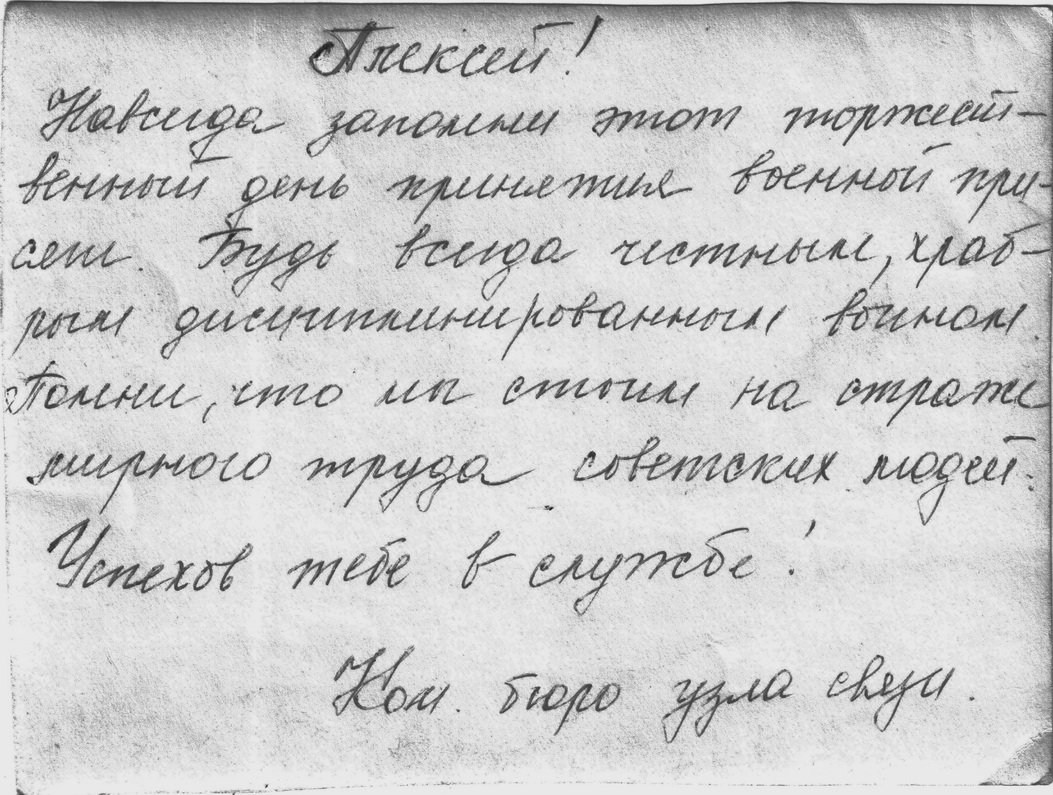 Алексей!
Навсегда запомни этот торжест-
венный день принятия военной при-
сяги. Будь всегда честным, храб-
рым дисциплинированным воином.
Помни, что мы стоим на страже
мирного труда советских людей.
Успехов тебе в службе!
Ком. бюро узла связи.